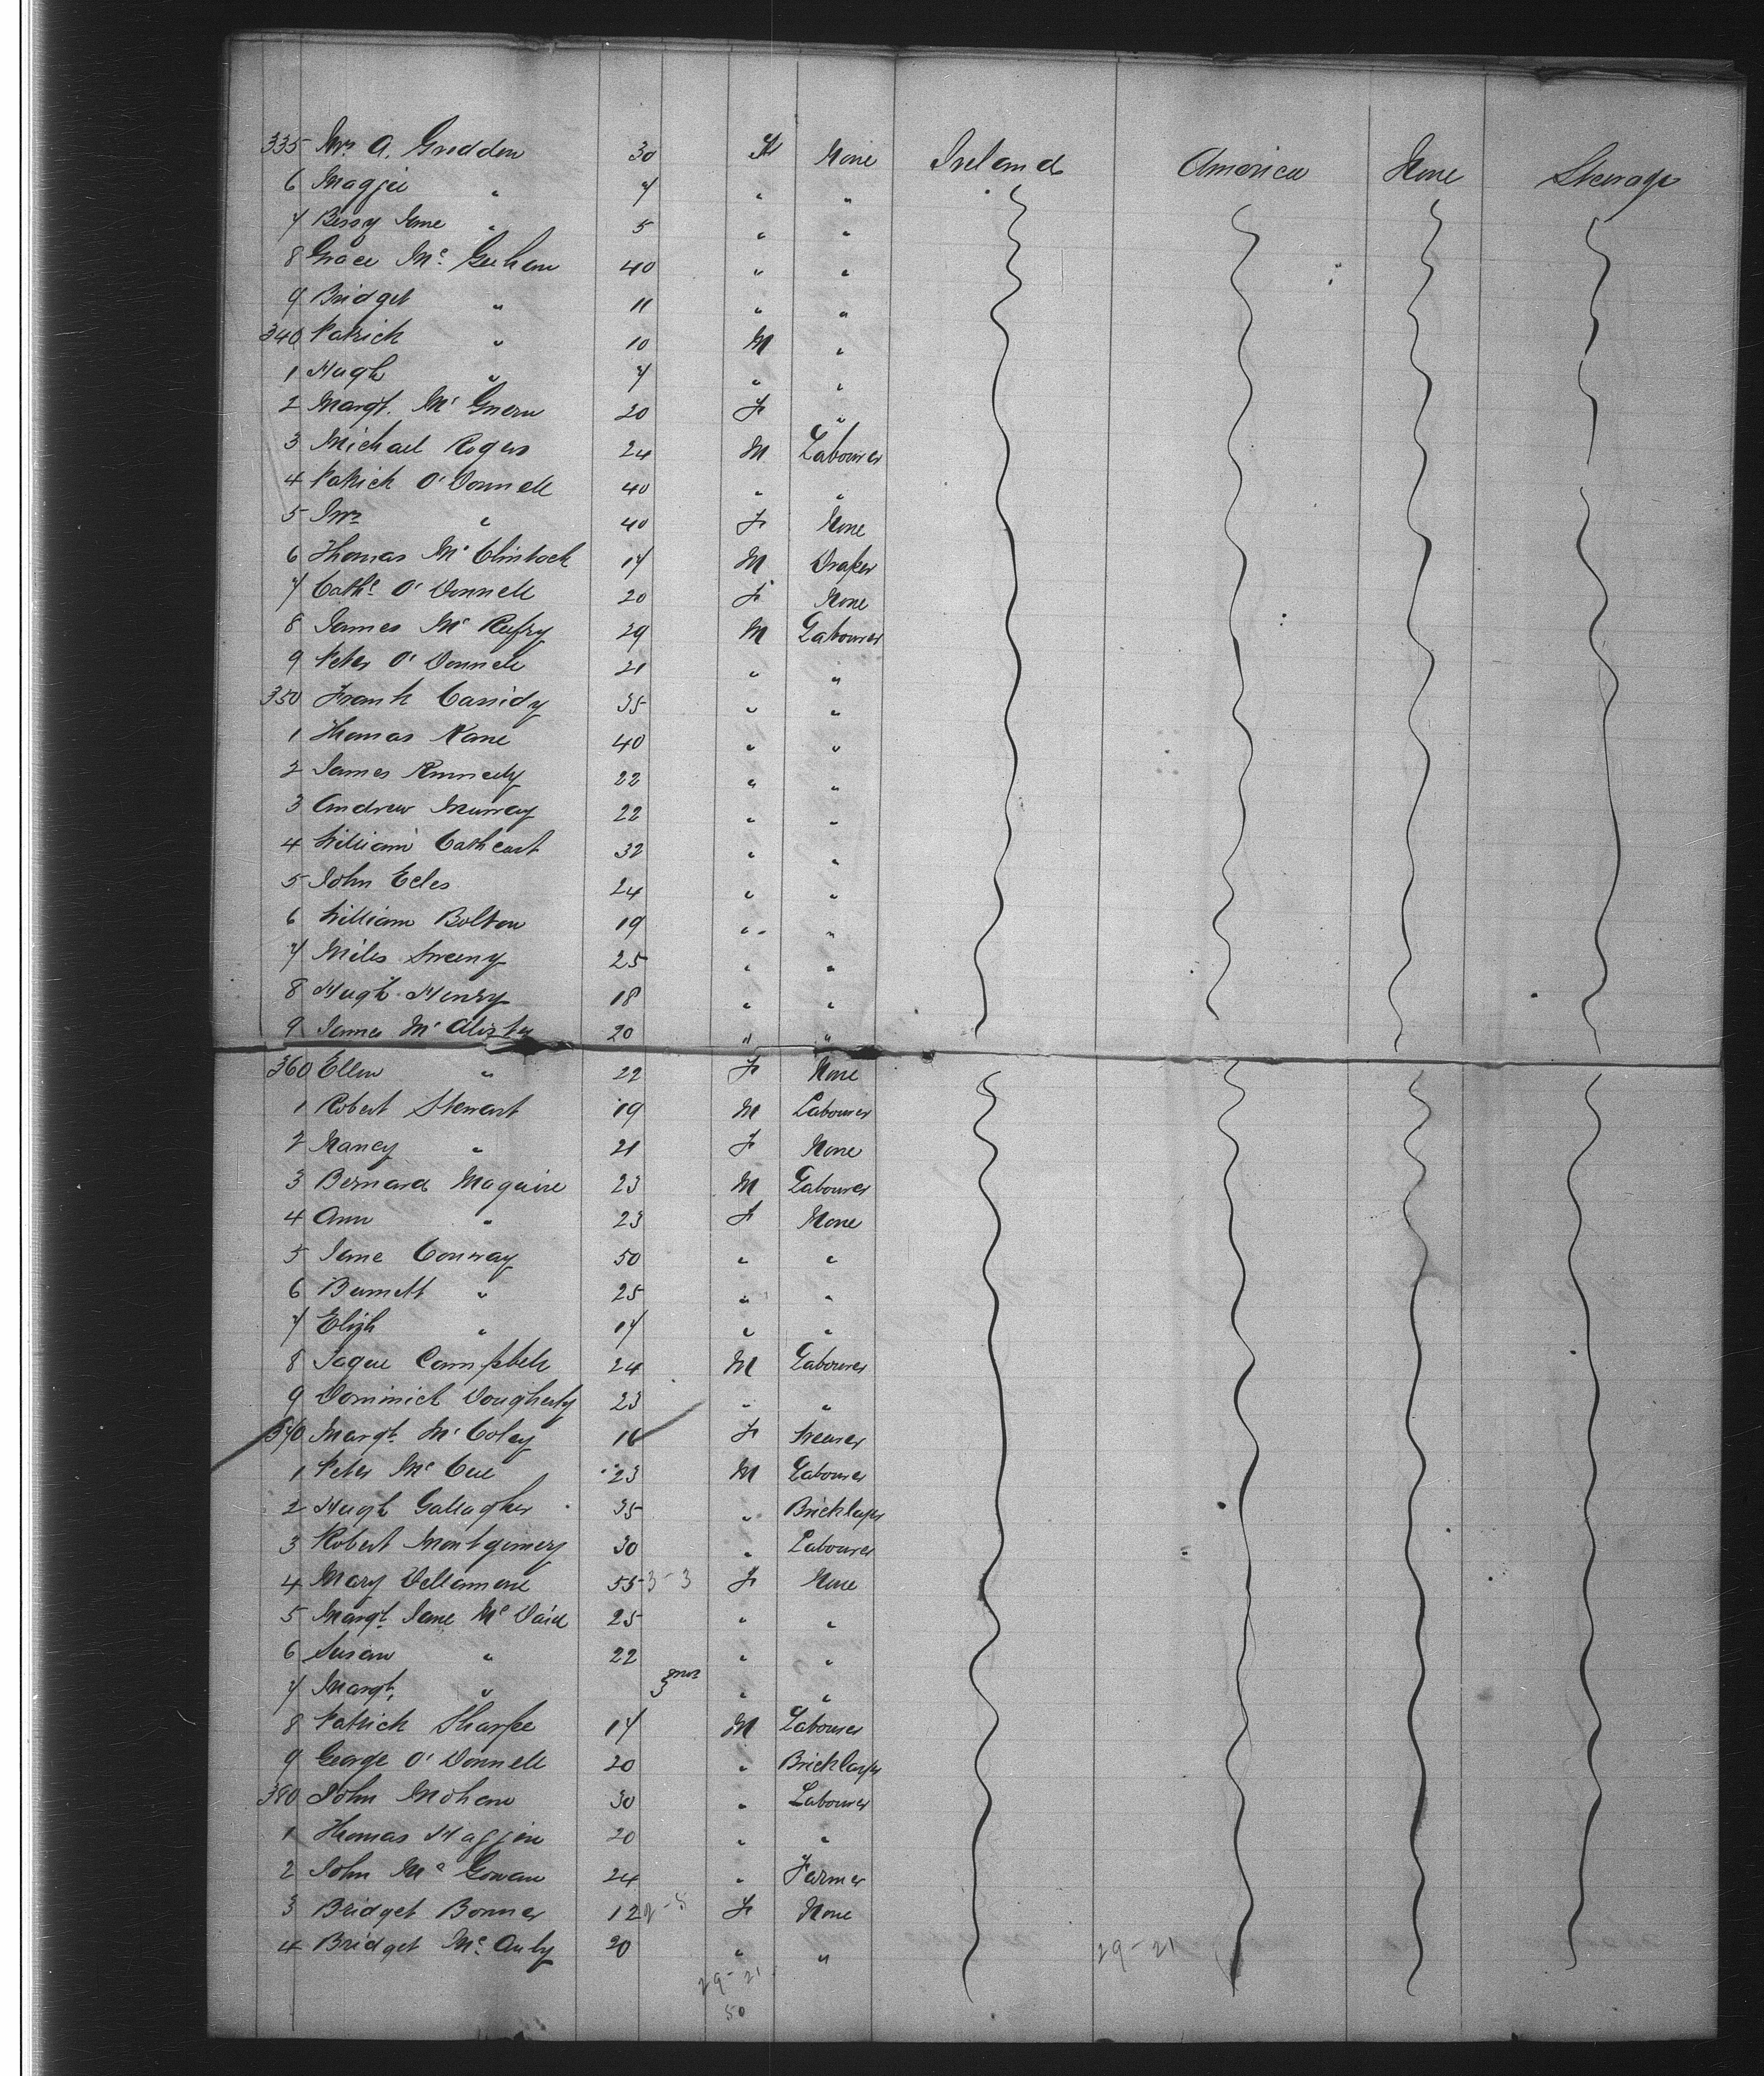 335 Mrs A. Gredden 30 F None Ireland America None Steerage
6 Maggie " 7 " "
7 Bessy Jane " 5 " "
8 Grace Mc Geehan 40 " "
9 Bridget " 11 " "
340 Patrick " 10 M "
1 Hugh " 7 " "
2 Margt. Mc 20 F "
3 Michael Rogers 24 M Labourer
4 Patrick O'Donnell 40 " "
5 Mrs " 40 F None
6 Thomas Mc Clintock 17 M Draper
7 Cathe O'Donnell 20 F None
8 James Mc 29 M Labourer
9 Peter O'Donnell 21 " "
350 Frank Cassidy 35 " "
1 Thomas Kane 40 " "
2 James Kennedy 22 " "
3 Andrew Murray 22 " "
4 William Cathcart 32 " "
5 John Ecles 24 " "
6 William Bolton 19 " "
7 Miles Sweeny 25 " "
8 Hugh Henry 18 " "
9 James Mc Alister 20 " "
360 Ellen " 22 F None
1 Robert Stewart 19 M Labourer
2 Nancy " 21 F None
3 Bernard Maguire 23 M Labourer
4 Ann " 23 F None
5 Jane Conway 50 " "
6 " 25 " "
7 Elizh " 17 " "
8 Campbell 24 M Labourer
9 Dominick Dougherty 23 " "
370 Margt. Mc Coley 16 F
1 Peter Mc Cue 23 M Labourer
2 Hugh Gallagher 35 " Bricklayer
3 Robert Montgomery 30 " Labourer
4 Mary Dellamore 55 3-3 F None
5 Margt. Jane Mc Daid 25 " "
6 Susan " 22 " "
7 Margt. " 3 mos " "
8 Patrick Sharpe 17 M Labourer
9 George O'Donnell 20 " Bricklayer
380 John Mohan 30 " Labourer
1 Thomas 20 " "
2 John Mc Gowan 24 " Farmer
3 Bridget Bonner 12 2-5 F None
4 Bridget Mc Anly 20 " " 29-21
29-21
50